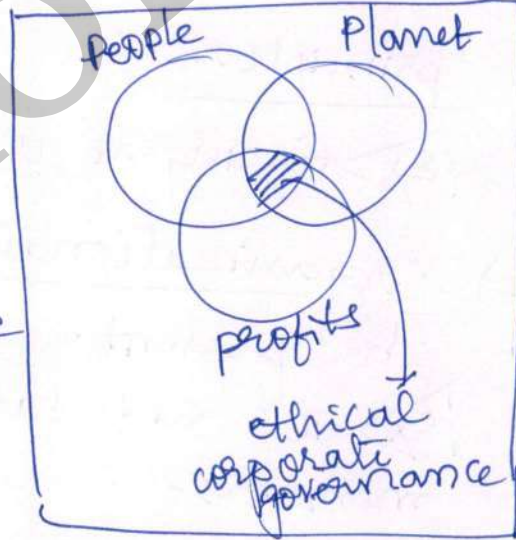 People
Planet
profits
ethical
corporate
governance